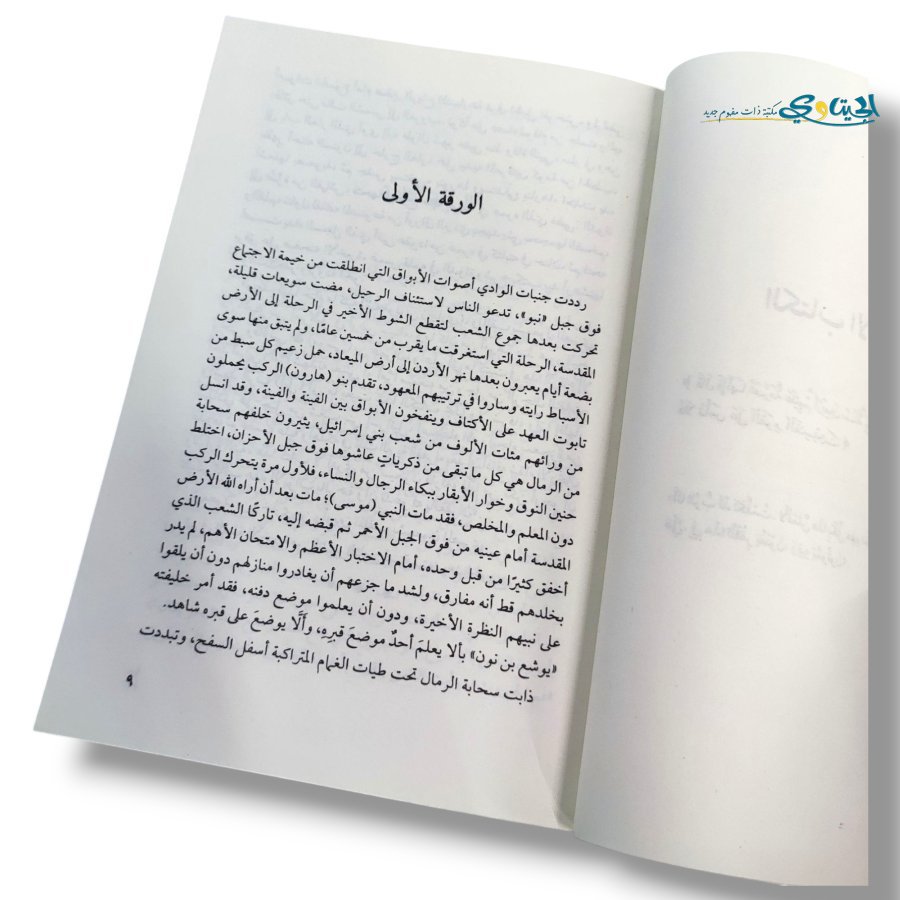 الجيتاوي مكتبة ذات مفهوم جديد
الورقة الأولى
رددت جنبات الوادي أصوات الأبواق التي انطلقت من خيمة الاجتماع
فوق جبل «نبو»، تدعو الناس لاستئناف الرحيل، مضت سويعات قليلة،
تحركت بعدها جموع الشعب لتقطع الشوط الأخير في الرحلة إلى الأرض
المقدسة، الرحلة التي استغرقت ما يقرب من خمسين عامًا، ولم يتبق منها سوى
بضعة أيام يعبرون بعدها نهر الأردن إلى أرض الميعاد، حمل زعيم كل سبط من
الأسباط رايته وساروا في ترتيبهم المعهود، تقدم بنو (هارون) الركب يحملون
تابوت العهد على الأكتاف وينفخون الأبواق بين الفينة والفينة، وقد انسل
من ورائهم مئات الألوف من شعب بني إسرائيل، يثيرون خلفهم سحابة
من الرمال هي كل ما تبقى من ذكرياتٍ عاشوها فوق جبل الأحزان، اختلط
حنين النوق وخوار الأبقار ببكاء الرجال والنساء، فلأول مرة يتحرك الركب
دون المعلم والمخلص، فقد مات النبي (موسى)؛ مات بعد أن أراه الله الأرض
المقدسة أمام عينيه من فوق الجبل الأحمر ثم قبضه إليه، تاركًا الشعب الذي
أخفق كثيرًا من قبل وحده، أمام الاختبار الأعظم والامتحان الأهم، لم يدر
بخلدهم قط أنه مفارق، ولشد ما جزعهم أن يغادروا منازلهم دون أن يلقوا
على نبيهم النظرة الأخيرة، ودون أن يعلموا موضع دفنه، فقد أمر خليفته
«يوشع بن نون» بألا يعلمَ أحدٌ موضعَ قبرِهِ، وَأَلَّا يوضعَ على قبره شاهد.
ذابت سحابة الرمال تحت طيات الغمام المتراكبة أسفل السفح، وتبددت
٩